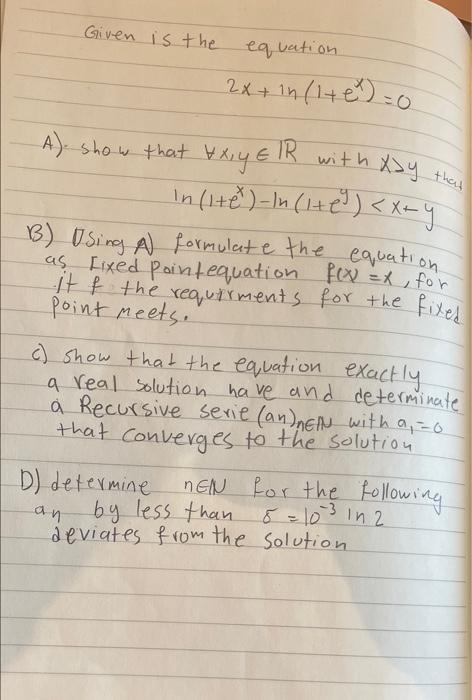 Given is the equation
2x + ln(1+e^x) = 0
A) show that ∀x,y ∈ ℝ with x>y then
ln(1+e^x) - ln(1+e^y) < x-y
B) Using A) formulate the equation
as Fixed point equation f(x) = x, for
it f the requirments for the fixed
point meets.
c) show that the equation exactly
a real solution have and determinate
a Recursive serie (an)n∈ℕ with a₁=0
that converges to the solution
D) determine n∈ℕ for the following
an by less than δ = 10^-3 ln 2
deviates from the solution